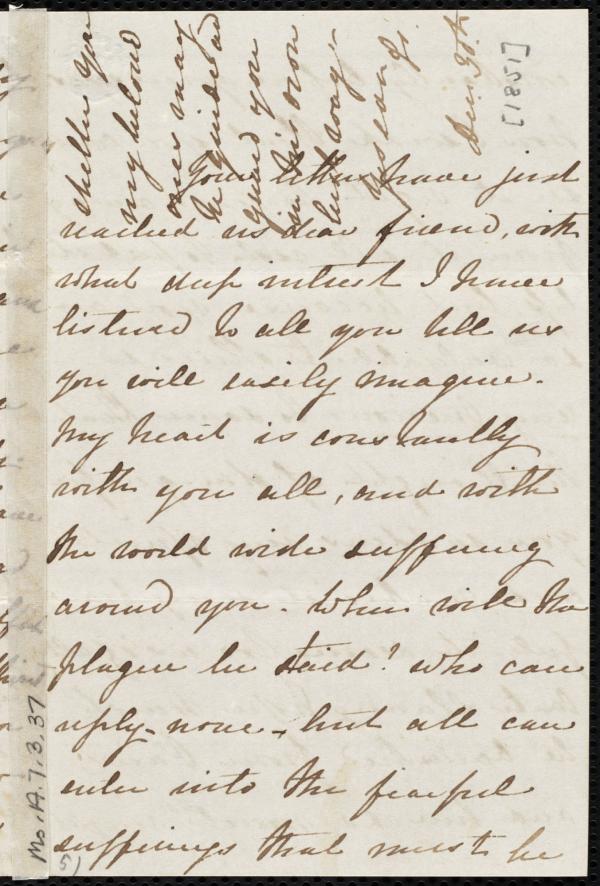 shelter you
my beloved
ones may
he guide and
guard you
in his own
Dec. 30th
[1851]
Your letters have just
reached us dear friend, with
what deep interest I have
listened to all you tell us
you will easily imagine.
My heart is constantly
with you all, and with
the world wide suffering
around you. When will the
plague be staid? who can
reply - none - but all can
enter into the fearful
sufferings that must be
Ms.A.7.3.37
5)